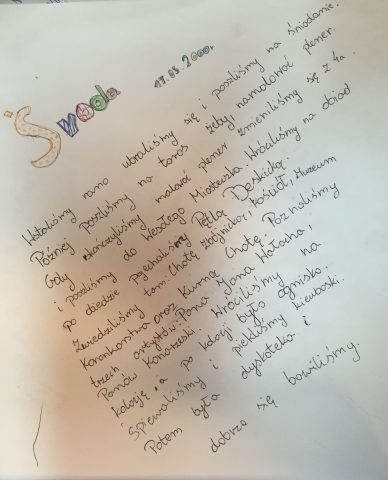 Środa 17.05.2000r
Wstaliśmy rano ubraliśmy się i poszliśmy na śniadanie.
Później poszliśmy na taras żeby namalować plener.
Gdy skończyliśmy malować plener zmieniliśmy się z 4a
i poszliśmy do Wesołego Miasteczka. Wróciliśmy na obiad
po obiedzie pojechaliśmy Perłą Beskidu.
Zwiedziliśmy tam: Chatę zbójnicką, kościół, Muzeum
Koronkarstwa oraz Kurną Chatę. Poznaliśmy
trzech artystów: Pana Jana Wałacha,
Panów Konarzewskich. Wróciliśmy na
kolację, a po kolacji było ognisko.
Śpiewaliśmy i piekliśmy kiełbaski.
Potem była dyskoteka i
dobrze się bawiliśmy.